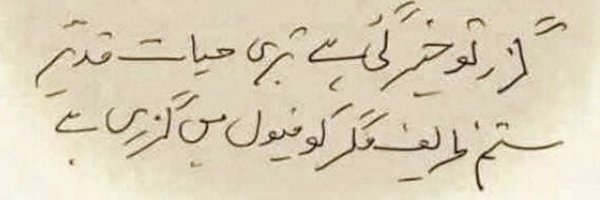 گزر تو خیر گئی ہے تری حیات قدیرؔ
ستم ظریف مگر کوفیوں میں گزری ہے